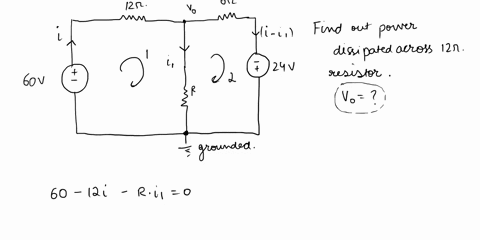 12Ω
V₀
i
(i-i₁)
1
i₁
2
60V
+
−
R
−
+
24V
grounded.
Find out power
dissipated across 12Ω
resistor.
V₀ = ?
60 − 12i − R·i₁ = 0